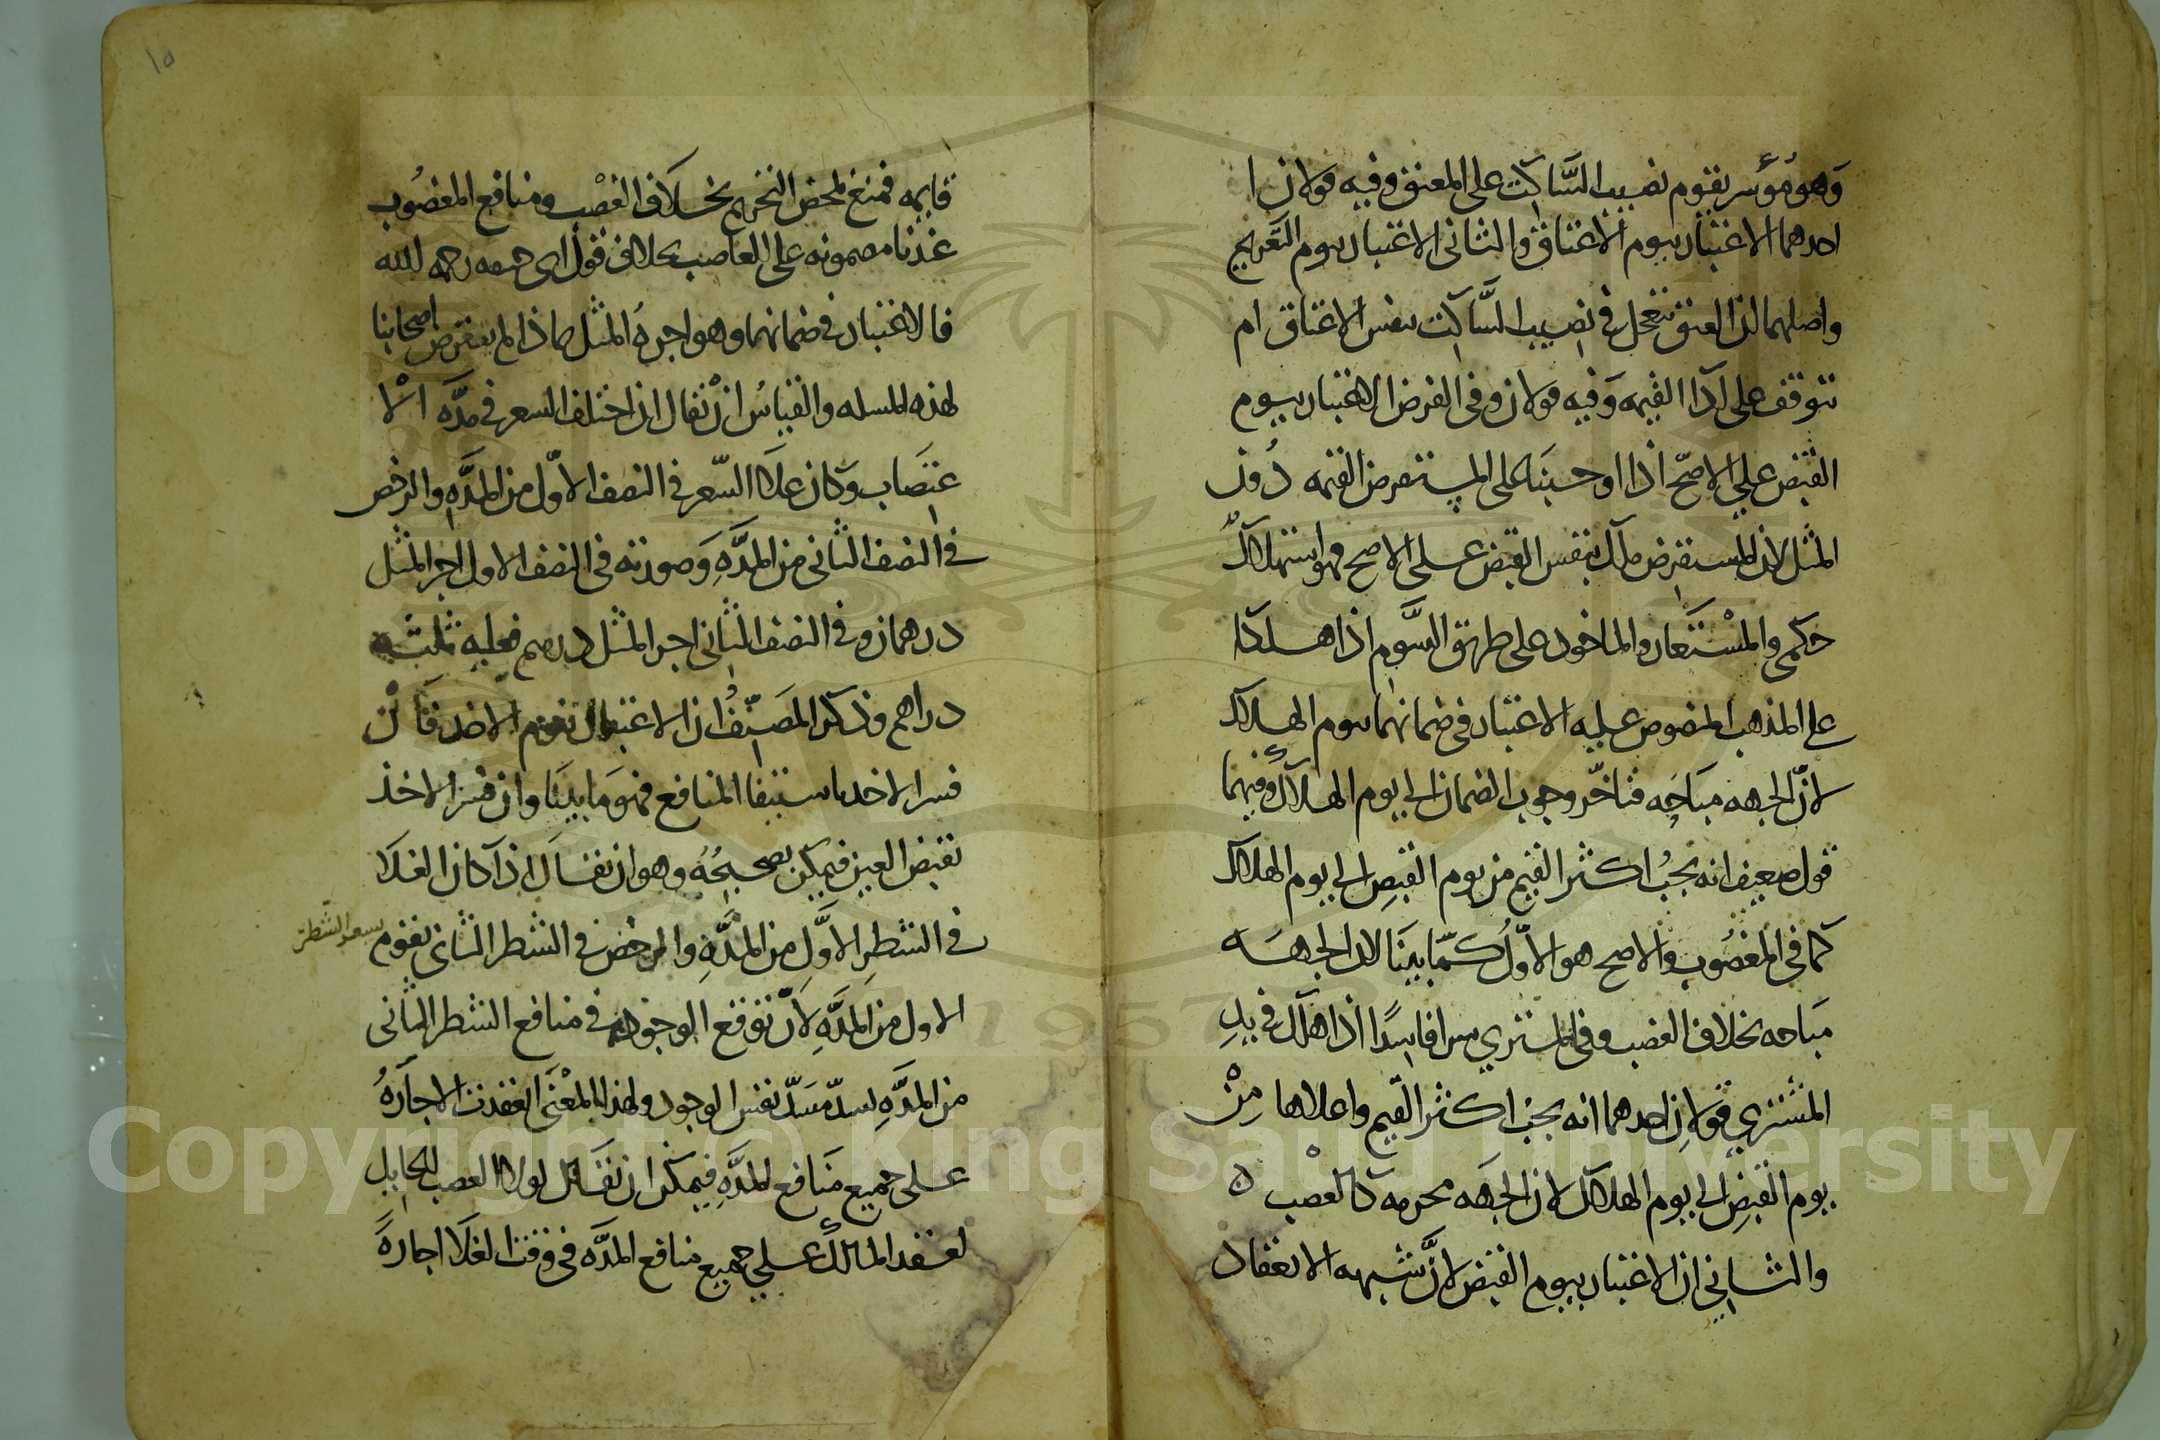 وهو مؤسر يقوم نصيب الساكت على المعتق وفيه قولان ا
احدهما الاعتبار بيوم الاعتاق والثاني الاعتبار بيوم
واصلهما ان العتق يتعجل في نصيب الساكت بنفس الاعتاق ام
يتوقف على اداا القيمه وفيه قولان وفي القرض الاعتبار بيوم
القبض على الاصح اذا اوجبنا على المستقرض القيمه دون
المثل لان المستقرض ملك بنفس القبض على الاصح فهو استهلاك
حكمي والمستعار والماخوذ على طريق السوم اذا هلكا
على المذهب المنصوص عليه الاعتبار في ضمانهما بيوم الهلاك
لان الجهه مباحه فتاخر وجوب الضمان الى يوم الهلاك وفيهما
قول ضعيف انه يجب اكثر القيم من يوم القبض الى يوم الهلاك
كما في المغصوب والاصح هو الاول كما بينا لان الجهه
مباحه بخلاف الغصب وفي المشتري شرا فاسدا اذا هلك في يد
المشتري قولان احدهما انه يجب اكثر القيم واعلاها من
يوم القبض الى يوم الهلاك لان الجهه محرمه كالغصب ه
والثاني ان الاعتبار بيوم القبض لان شبهه الانعقاد
١٥
قايمه فمنع لمحض التحريم بخلاف الغصب ومنافع المغصوب
عندنا مضمونه على الغاصب بخلاف قول ابي حنيفه رحمه الله
فالاعتبار في ضمانهما وهو اجره المثل ماذا لم يتعرض اصحابنا
لهذه المسله والقياس ان يقال اذا اختلف السعر في مده الا
غتصاب وكان غلاا السعر في النصف الاول من المده والرخص
في النصف الثاني من المده وصورته في النصف الاول اجر المثل
درهمان وفي النصف الثاني اجر المثل درهم فعليه ثلثه
دراهم وذكر المصنف ان الاعتبار بيوم الاخذ فان
فسر الاخذ باستيفا المنافع فهو ما بينا وان فسر الاخذ
بقبض العين فيمكن تصحيحه وهو ان يقال اذا كان الغلا
في الشطر الاول من المده والرخص في الشطر الثاني يقوم بسعر الشطر
الاول من المده لان توقع الوجود في منافع الشطر الثاني
من المده يسد مسد نفس الوجود ولهذا المعنى انعقدت الاجاره
على جميع منافع المده فيمكن ان يقال لولا الغصب الحايل
لعقد المالك على جميع منافع المده في وقت الغلا اجاره
Copyright © King Saud University
1957